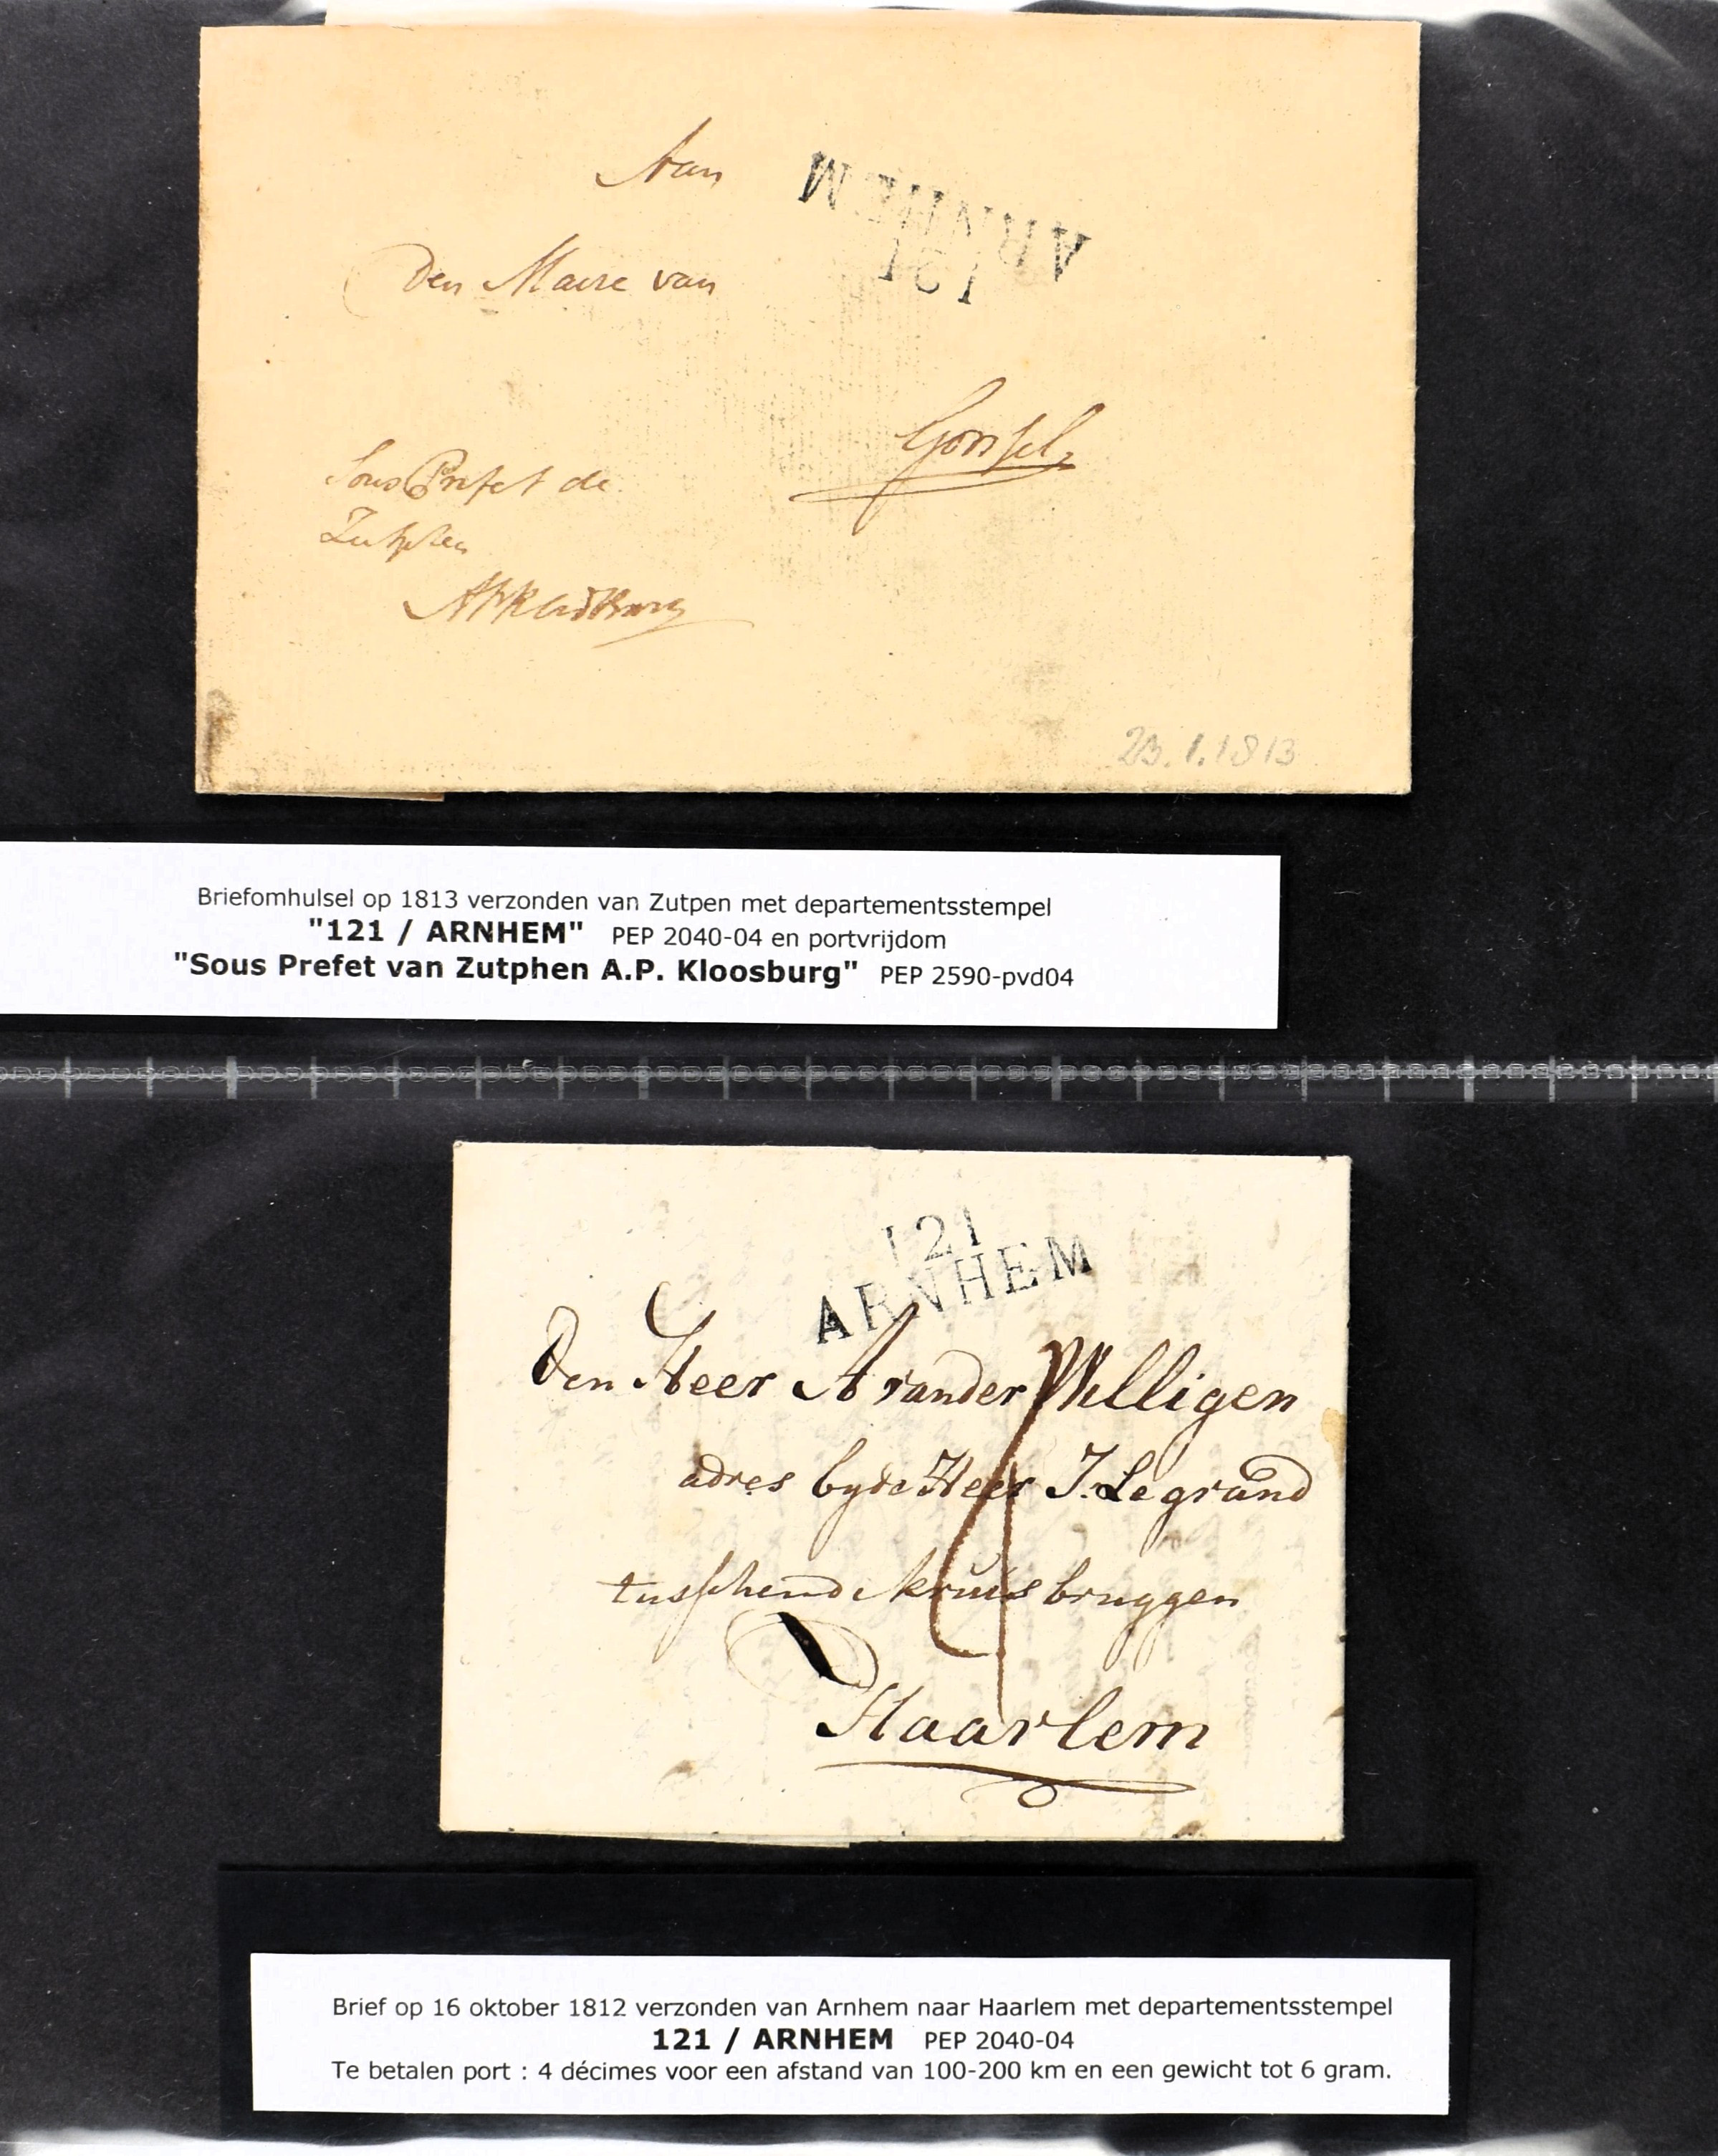 Aan
ARNHEM
121
Den Maire van
Gorssel
Sous Prefet de
Zutphen
23.1.1813
Briefomhulsel op 1813 verzonden van Zutpen met departementsstempel
"121 / ARNHEM" PEP 2040-04 en portvrijdom
"Sous Prefet van Zutphen A.P. Kloosburg" PEP 2590-pvd04
121
ARNHEM
Den Heer A vander Willigen
adres by de Heer J. Le grand
tusschen de kruis bruggen
4
Haarlem
Brief op 16 oktober 1812 verzonden van Arnhem naar Haarlem met departementsstempel
121 / ARNHEM PEP 2040-04
Te betalen port : 4 décimes voor een afstand van 100-200 km en een gewicht tot 6 gram.